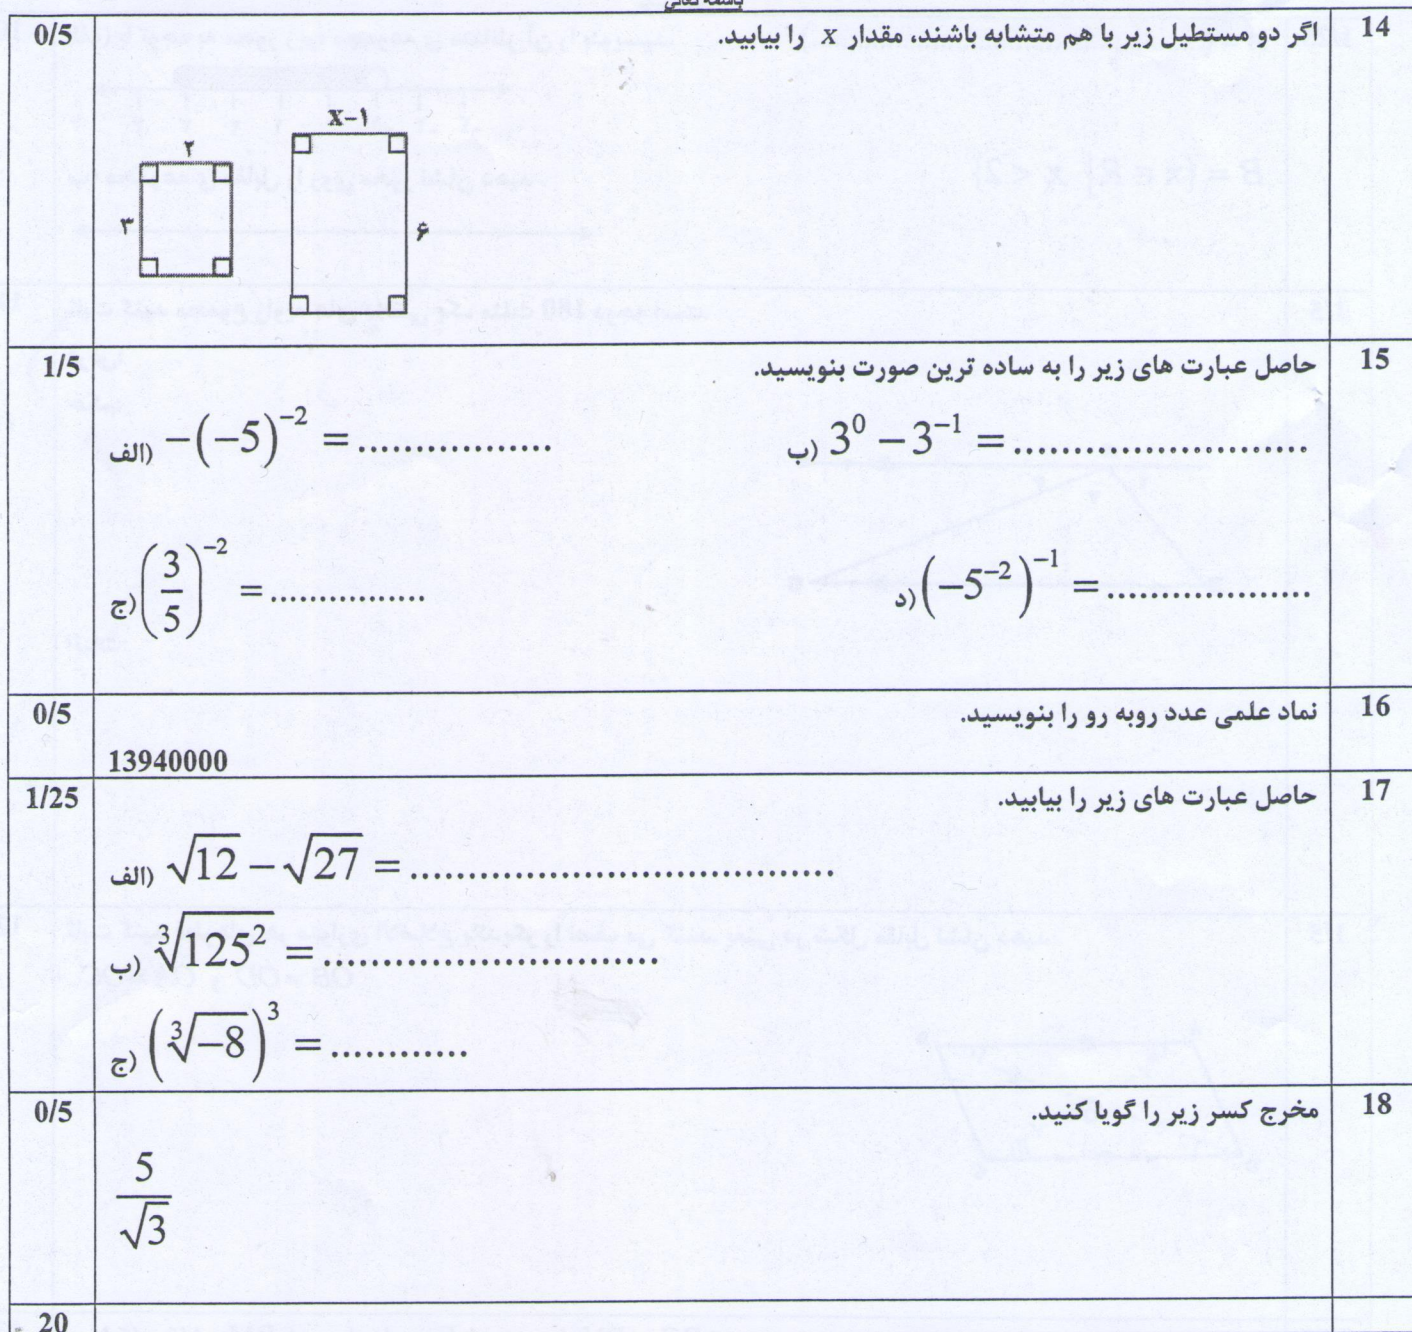 باسمه تعالی
14 اگر دو مستطیل زیر با هم متشابه باشند، مقدار x را بیابید. 0/5
x-۱
۲
۳ ۶
15 حاصل عبارت های زیر را به ساده ترین صورت بنویسید. 1/5
الف) -(-5)^{-2} = ................ ب) 3^0 - 3^{-1} = ........................
ج) (3/5)^{-2} = ............. د) (-5^{-2})^{-1} = .................
16 نماد علمی عدد روبه رو را بنویسید. 0/5
13940000
17 حاصل عبارت های زیر را بیابید. 1/25
الف) √12 - √27 = ...................................
ب) ∛125² = ............................
ج) (∛-8)³ = ............
18 مخرج کسر زیر را گویا کنید. 0/5
5/√3
20